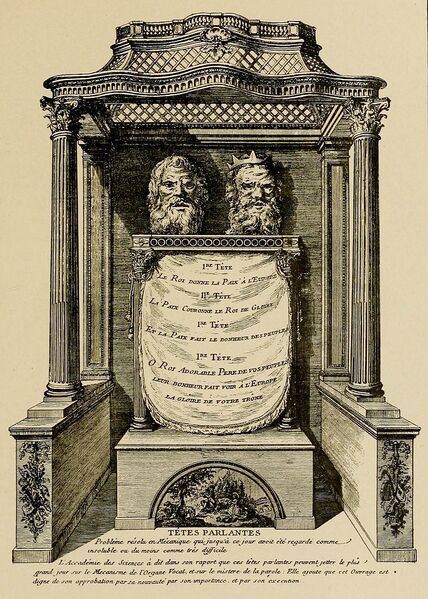 1re TÊTE
LE ROI DONNE LA PAIX A L'EUROPE
IIe TÊTE
LA PAIX COURONNE LE ROI DE GLOIRE
1re TÊTE
ET LA PAIX FAIT LE BONHEUR DES PEUPLES
1re TÊTE
O ROI ADORABLE PERE DE VOS PEUPLES
LEUR BONHEUR FAIT VOIR À L'EUROPE
LA GLOIRE DE VOTRE TRONE
TÊTES PARLANTES
Problême résolu en Mécanique qui jusqu'à ce jour avoit été regardé comme
insoluble ou du moins comme très difficile
L'Accadémie des Sciences à dit dans son raport que ces têtes parlantes peuvent jetter le plus
grand jour sur le Mécanisme de l'Organe Vocal, et sur le mistere de la parole: Elle ajoute que cet Ouvrage est
digne de son approbation par sa nouveauté par son importance, et par son execution